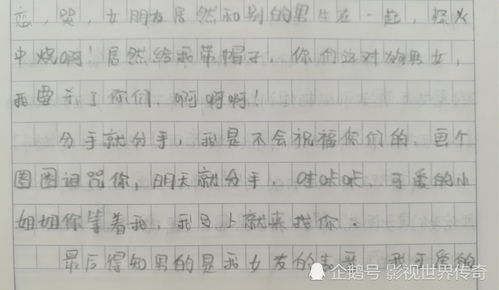 恋，哭，女朋友居然和别的男生在一起，怒火
中烧啊！居然给我带帽子，你们这对狗男女，
我要杀了你们，啊啊啊！
分手就分手，我是不会祝福你们的，画个
圈圈诅咒你，明天就分手，咔咔咔，可爱的小
姐姐你等着我，我马上就来找你。
最后得知男的是我女友的表哥，我可爱的
企鹅号 影视世界传奇